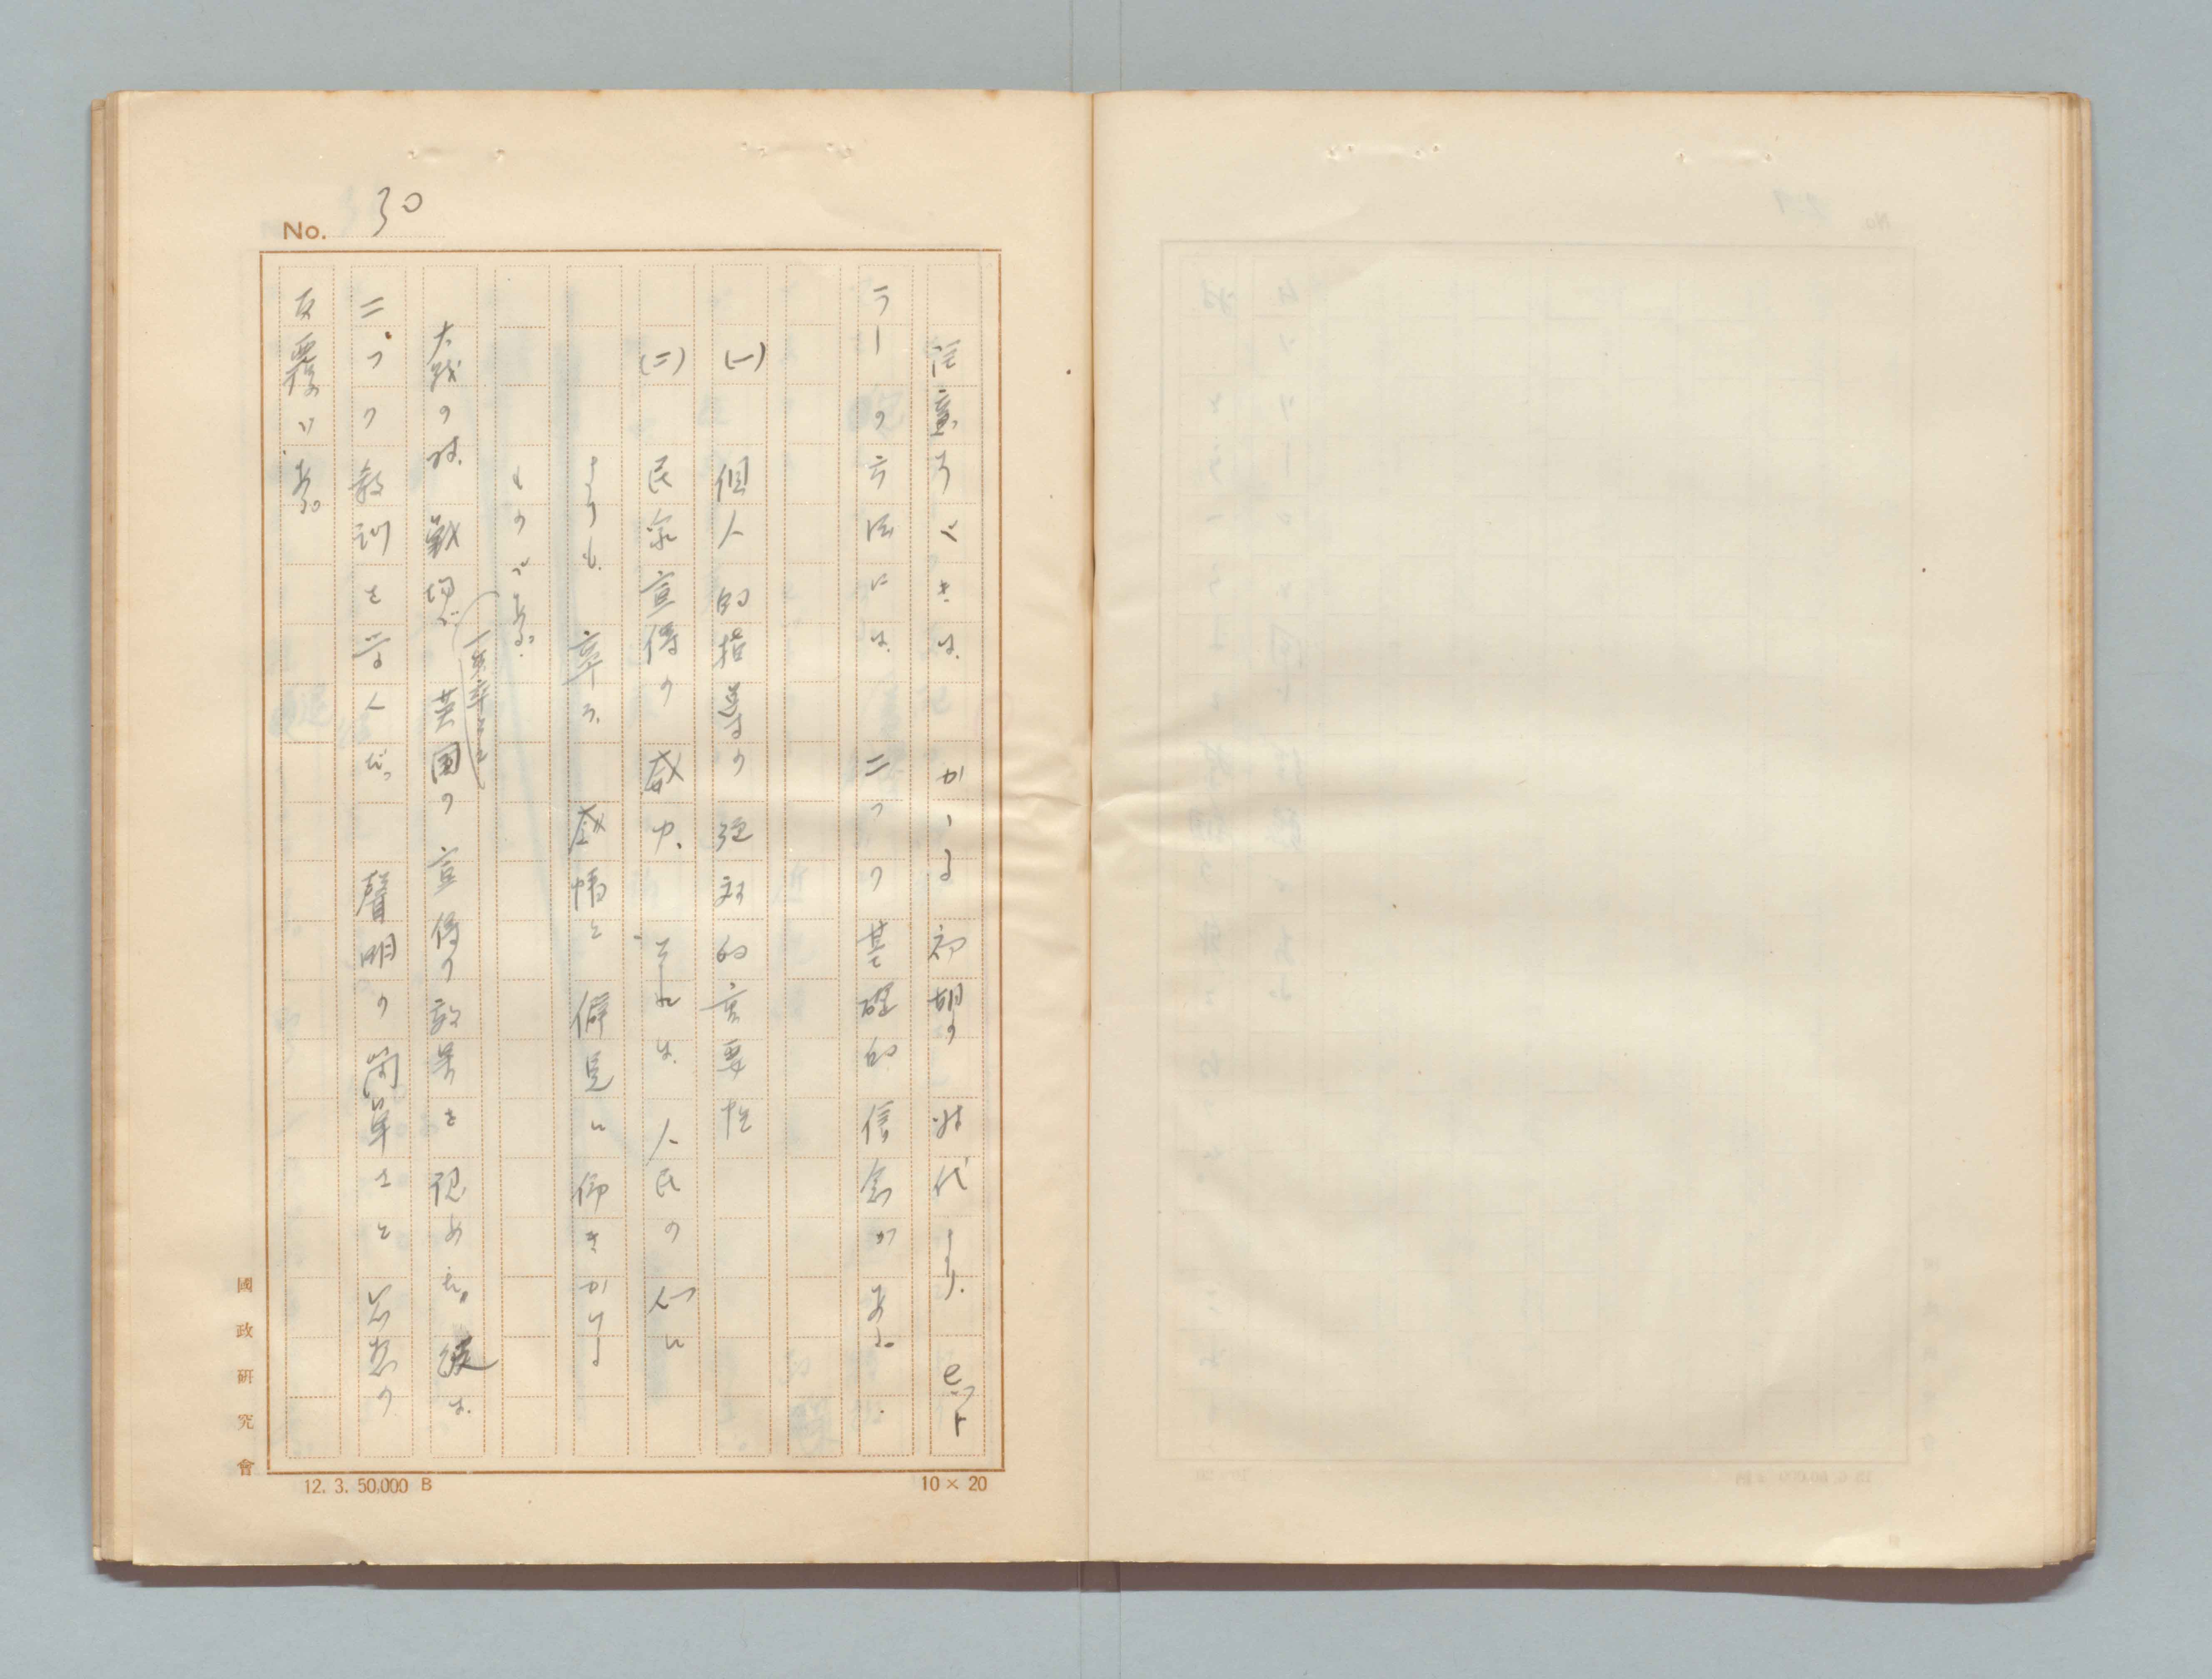 No. 30
注意すべきは、かゝる初期の時代より、ヒット
ラーの方法には、二つの基礎的信念がある。
(一) 個人的指導の絶対的重要性
(二) 民衆宣伝の威力、それは、人民の心に
よりも、寧ろ、感情と偏見に働きかける
ものである。
大戦の時、戦場で英国の宣伝の效果を認めた。彼は、
二つの教訓を学んだ。聲明の簡単さと
反覆である。
國政研究會
12. 3. 50,000 B
10 × 20